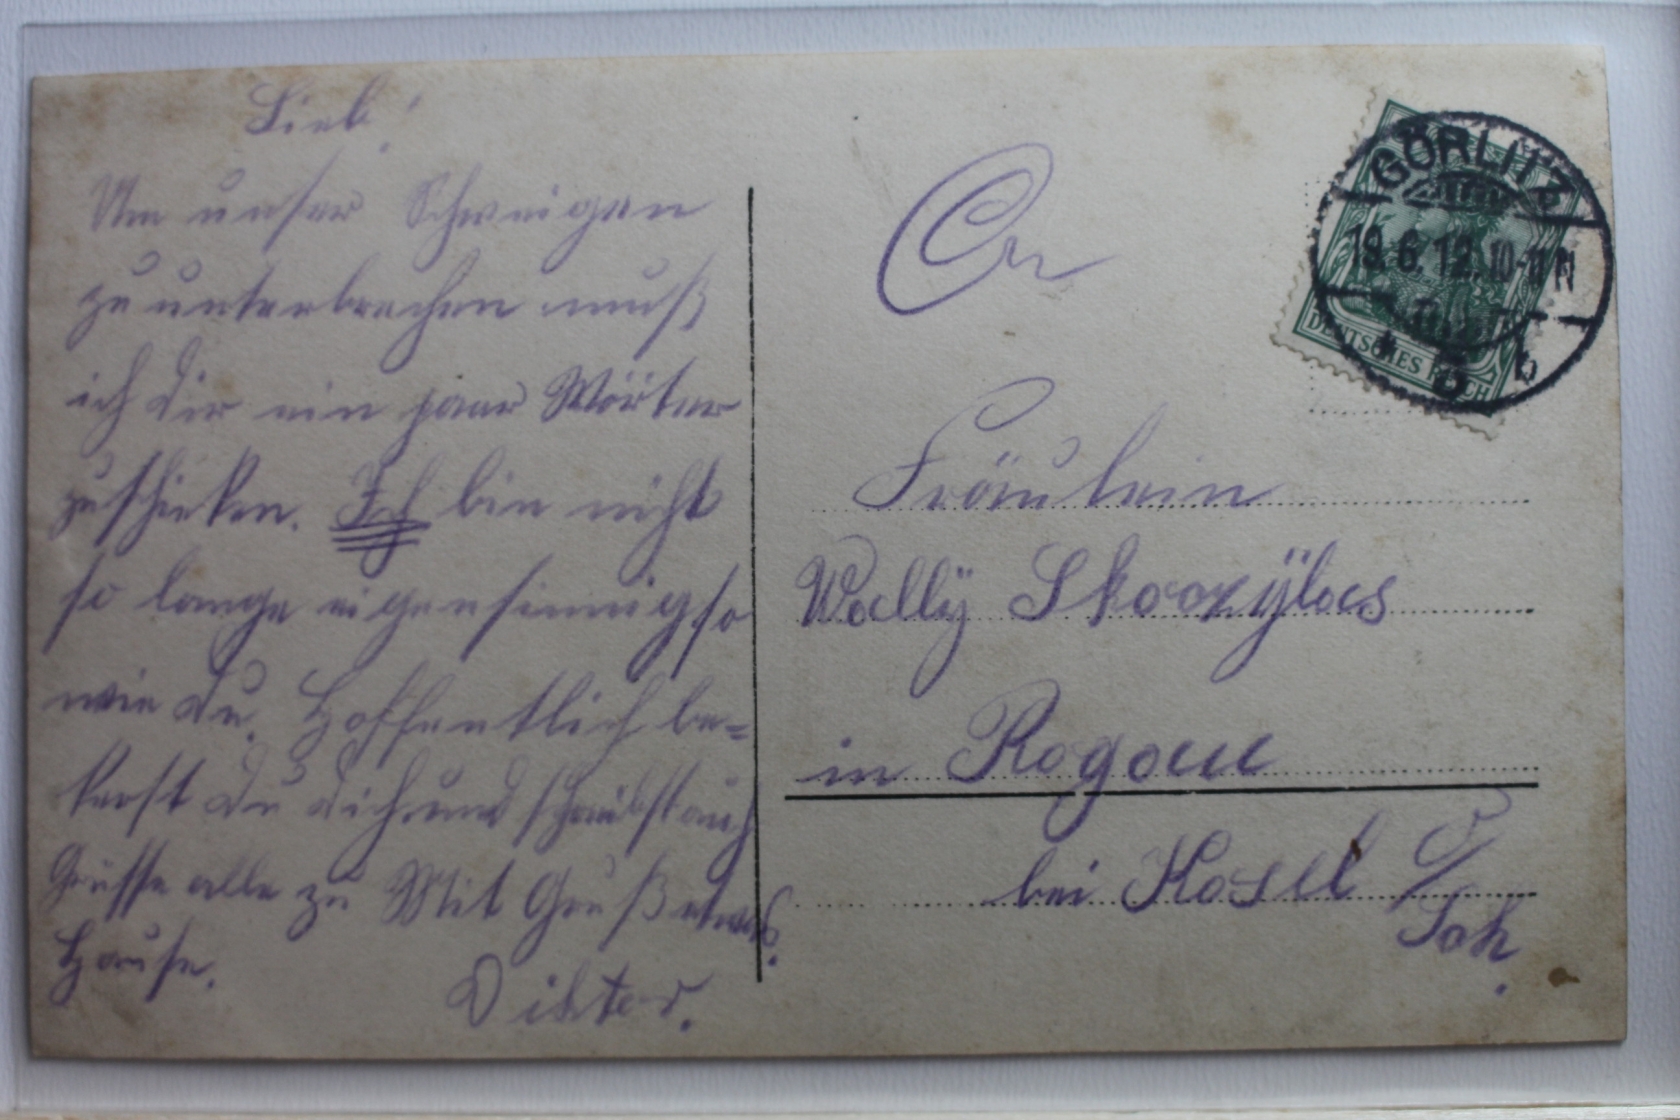 Lieb!
Um unser Schweigen
zu unterbrechen muß
ich dir ein paar Wörter
zuschieken. Ich bin nicht
so lange eigensinnig so
wie du. Hoffentlich be=
kerst du dich und schreibst auch
Grüsse alle zu Mit Gruß etwas.
Hause.
Viktor.
An
Fräulein
Wally
in Rogau
bei Kosel O/
Sch.
GÖRLITZ
19.6.12.10-11N
* 5 b
DEUTSCHES REICH